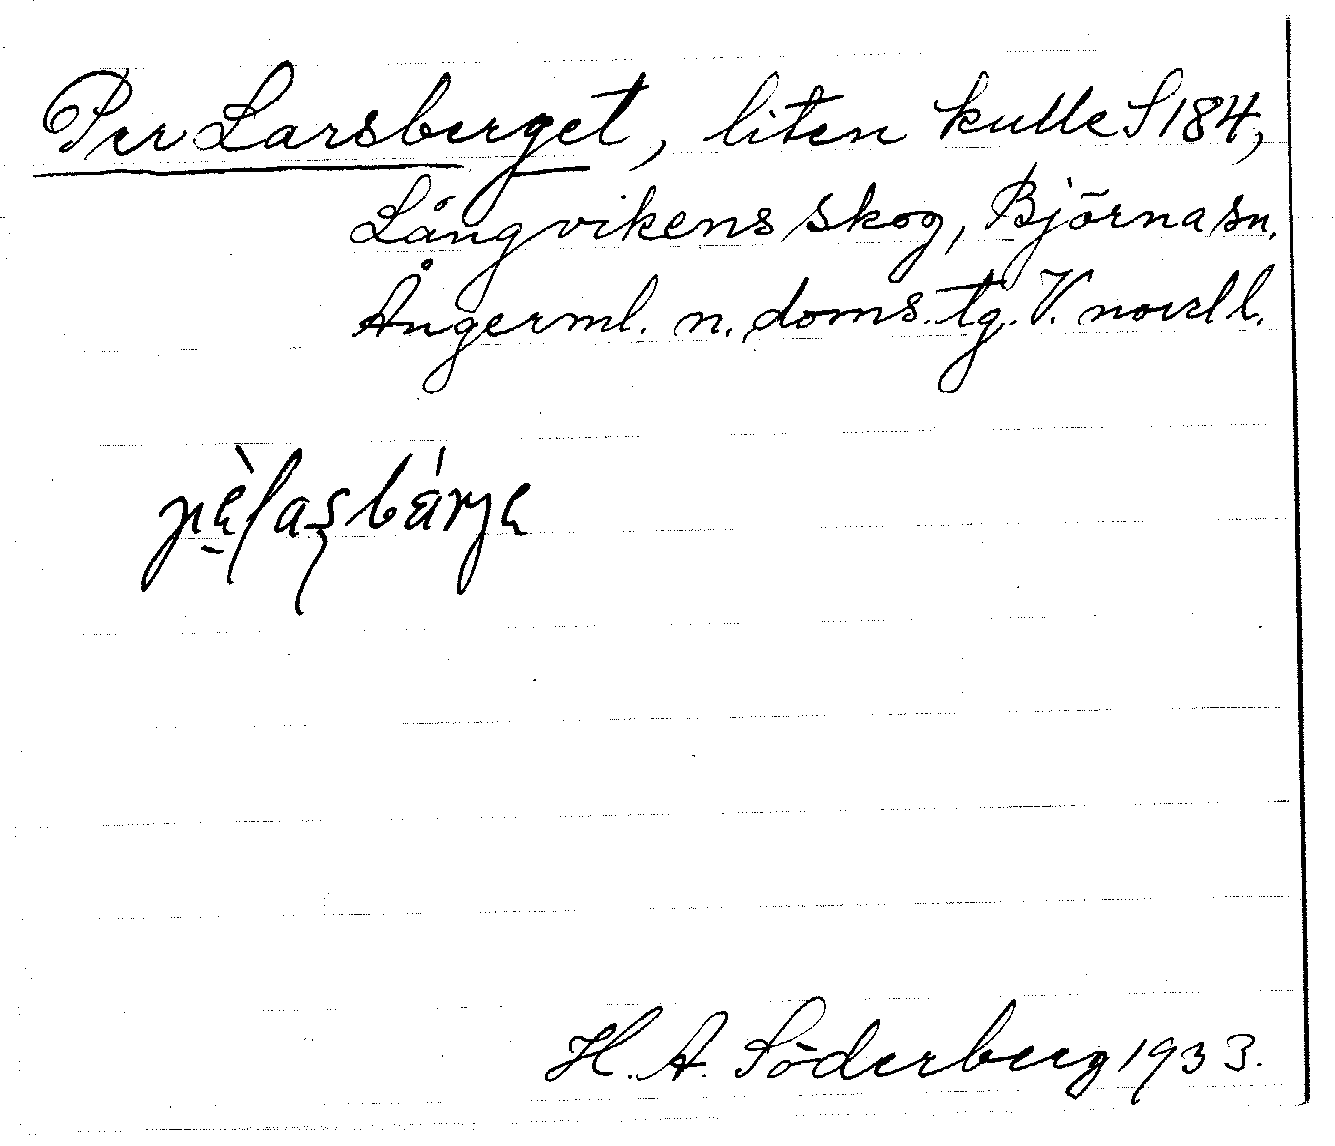 Per Larsberget, liten kulle S 184,
Långvikens skog, Björna sn.
Ångerml. n. doms. tg. V. norrl l.
H. A. Söderberg 1933.